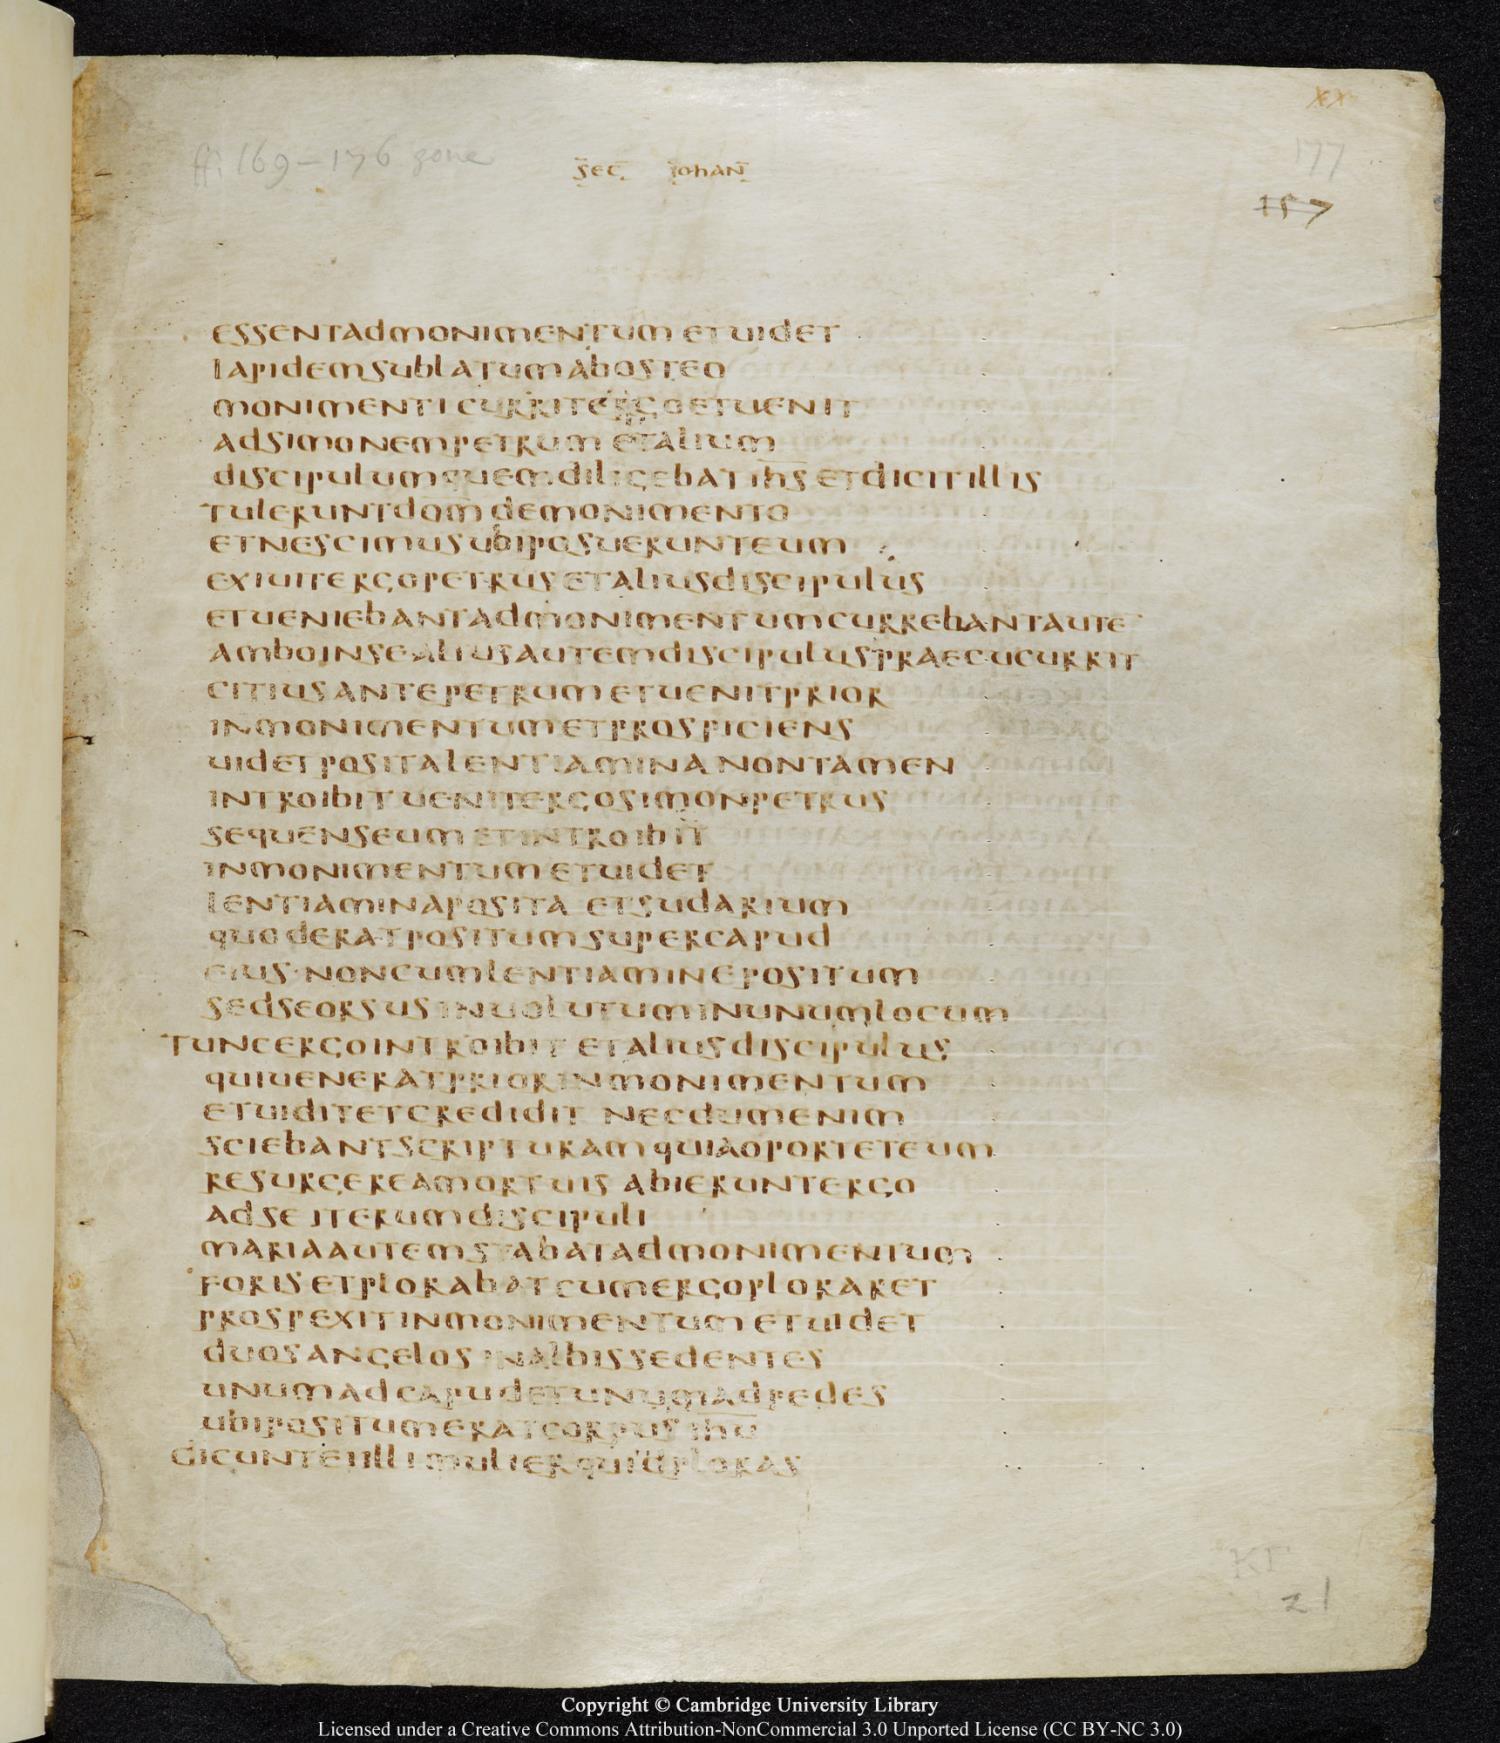 xx
ff. 169–176 gone
177
sec̄ iohan̄
157
essentadmonimentum etuidet
lapidemsublatumabosteo
monimenti curritergoetuenit
adsimonempetrum etalium
discipulumquemdiligebatih̅s etdicitillis
tuleruntdom̅ demonimento
etnescimusubiposuerunteum
exiuitergopetrusetaliusdiscipulus
etueniebantadmonimentumcurrebantaute̅
amboinsealiusautemdiscipuluspraecucurrit
citiusantepetrumetuenitprior
inmonimentumetprospiciens
uidetpositalentiamina nontamen
introibit uenitergosimonpetrus
sequenseum etintroibit
inmonimentumetuidet
lentiaminaposita etsudarium
quoderatpositumsupercapud
eius noncumlentiaminepositum
sedseorsus inuolutuminunumlocum
tuncergointroibit etaliusdiscipulus
quiueneratpriorinmonimentum
etuiditetcredidit necdumenim
sciebantscripturamquiaoporteteum
resurgereamortuis abieruntergo
adse iterumdiscipuli
mariaautemstabatadmonimentum
foris etplorabatcumergoploraret
prospexitinmonimentum etuidet
duosangelos inalbissedentes
unumadcapudetunumadpedes
ubipositumeratcorpus ih̅u̅
dicunteiilli mulierquidploras
ΚΓ
21
Copyright © Cambridge University Library
Licensed under a Creative Commons Attribution-NonCommercial 3.0 Unported License (CC BY-NC 3.0)